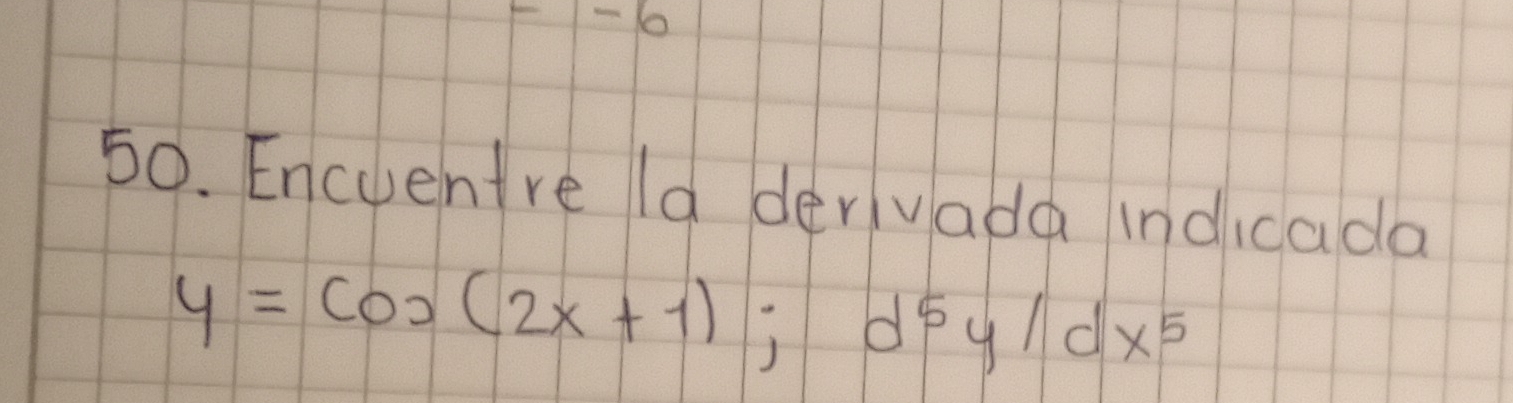 - -6
50. Encuentre la derivada indicada
y = cos (2x + 1) ; d⁵y / dx⁵